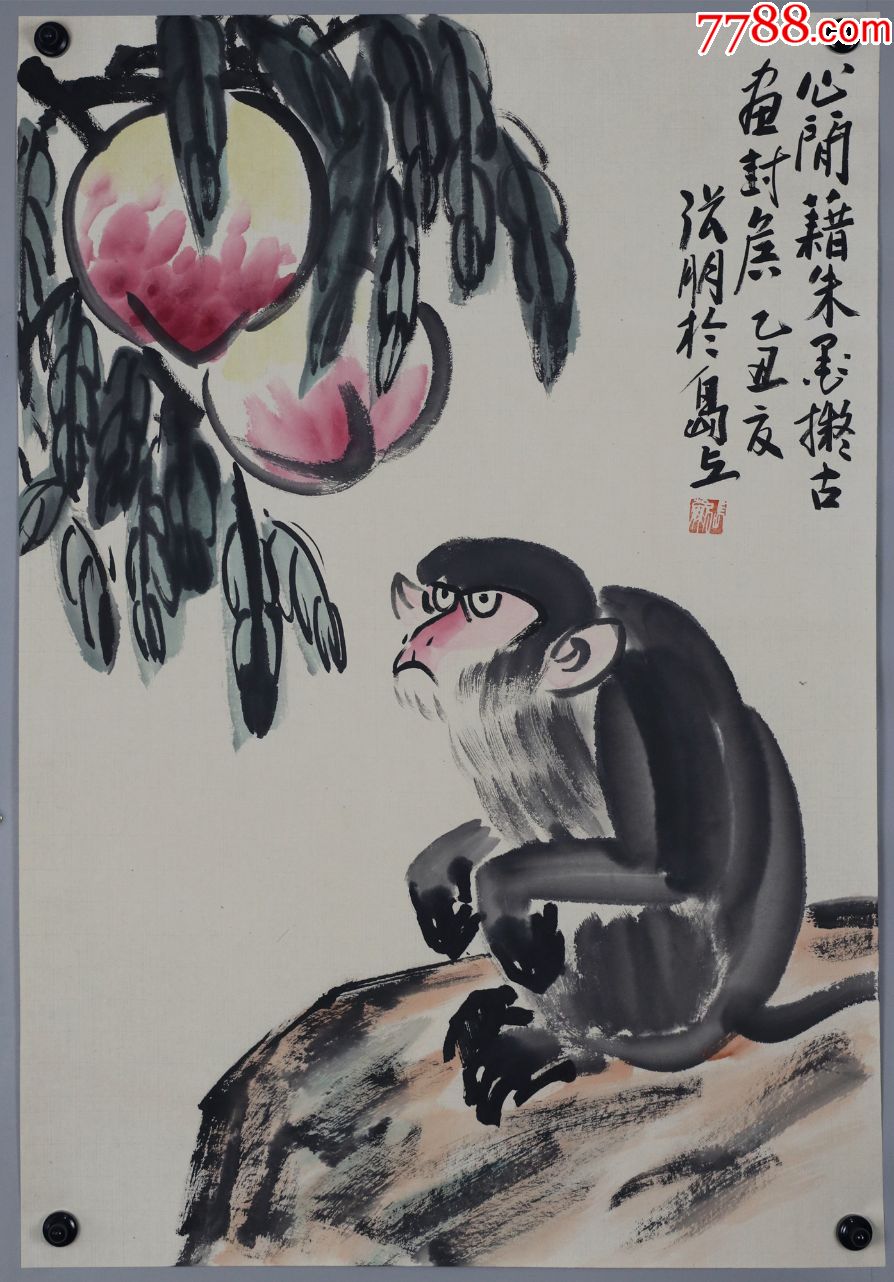 7788.com
心閒藉朱墨擬古
画封侯 乙丑夏
张朋於島上